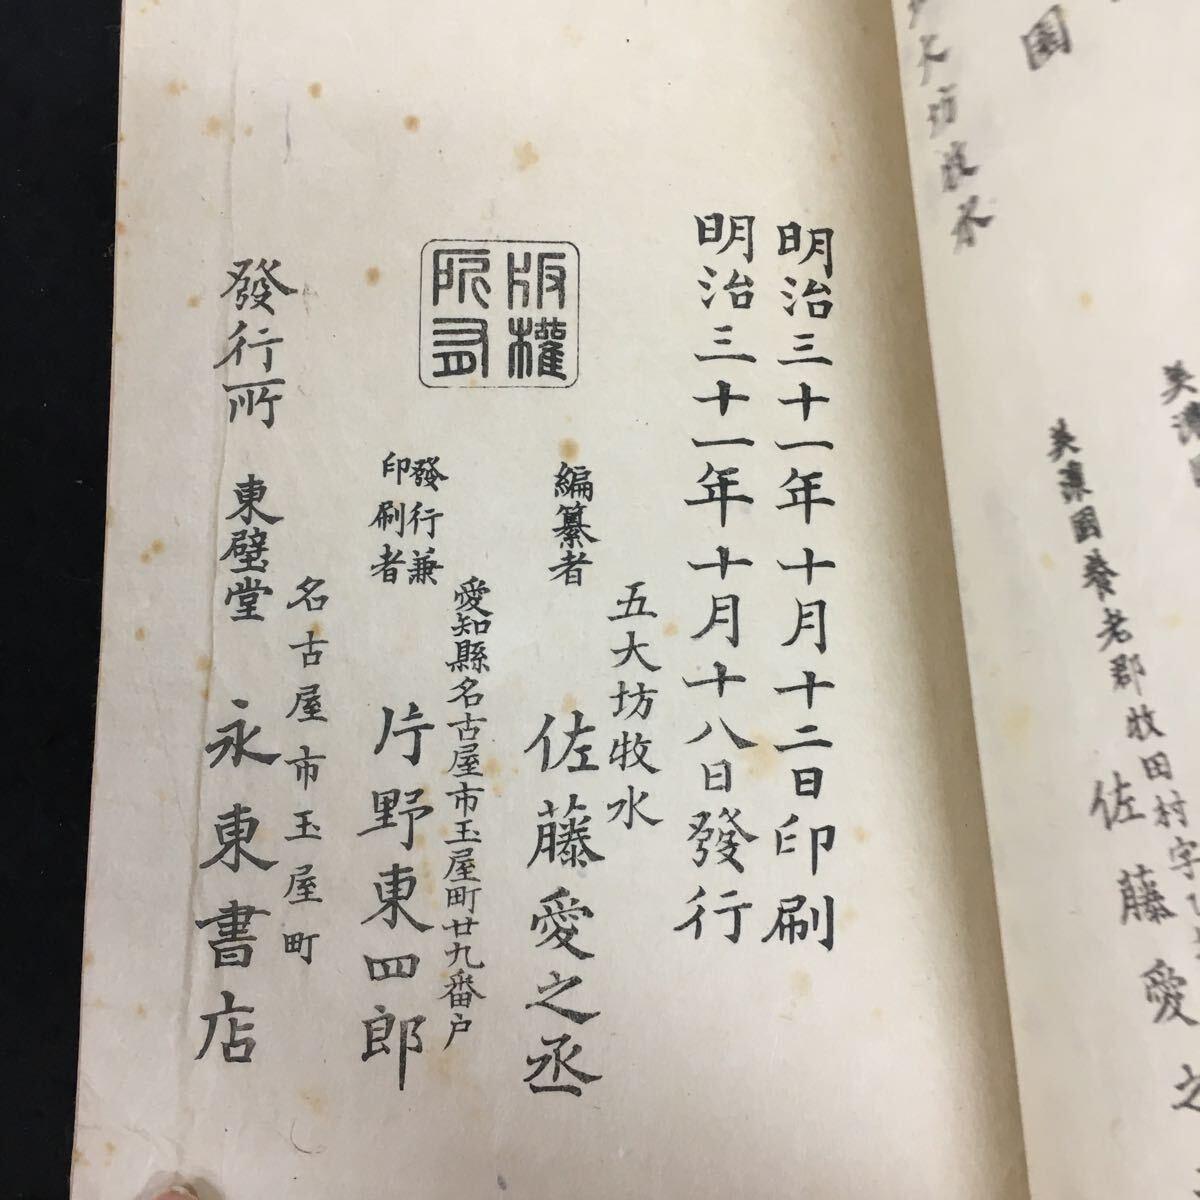 園
美濃國養老郡牧田村字
佐藤愛之
明治三十一年十月十二日印刷
明治三十一年十月十八日發行
版權
所有
五大坊牧水
編纂者
佐藤愛之丞
愛知縣名古屋市玉屋町廿九番戸
發行兼
印刷者
片野東四郎
名古屋市玉屋町
發行所
東壁堂
永東書店